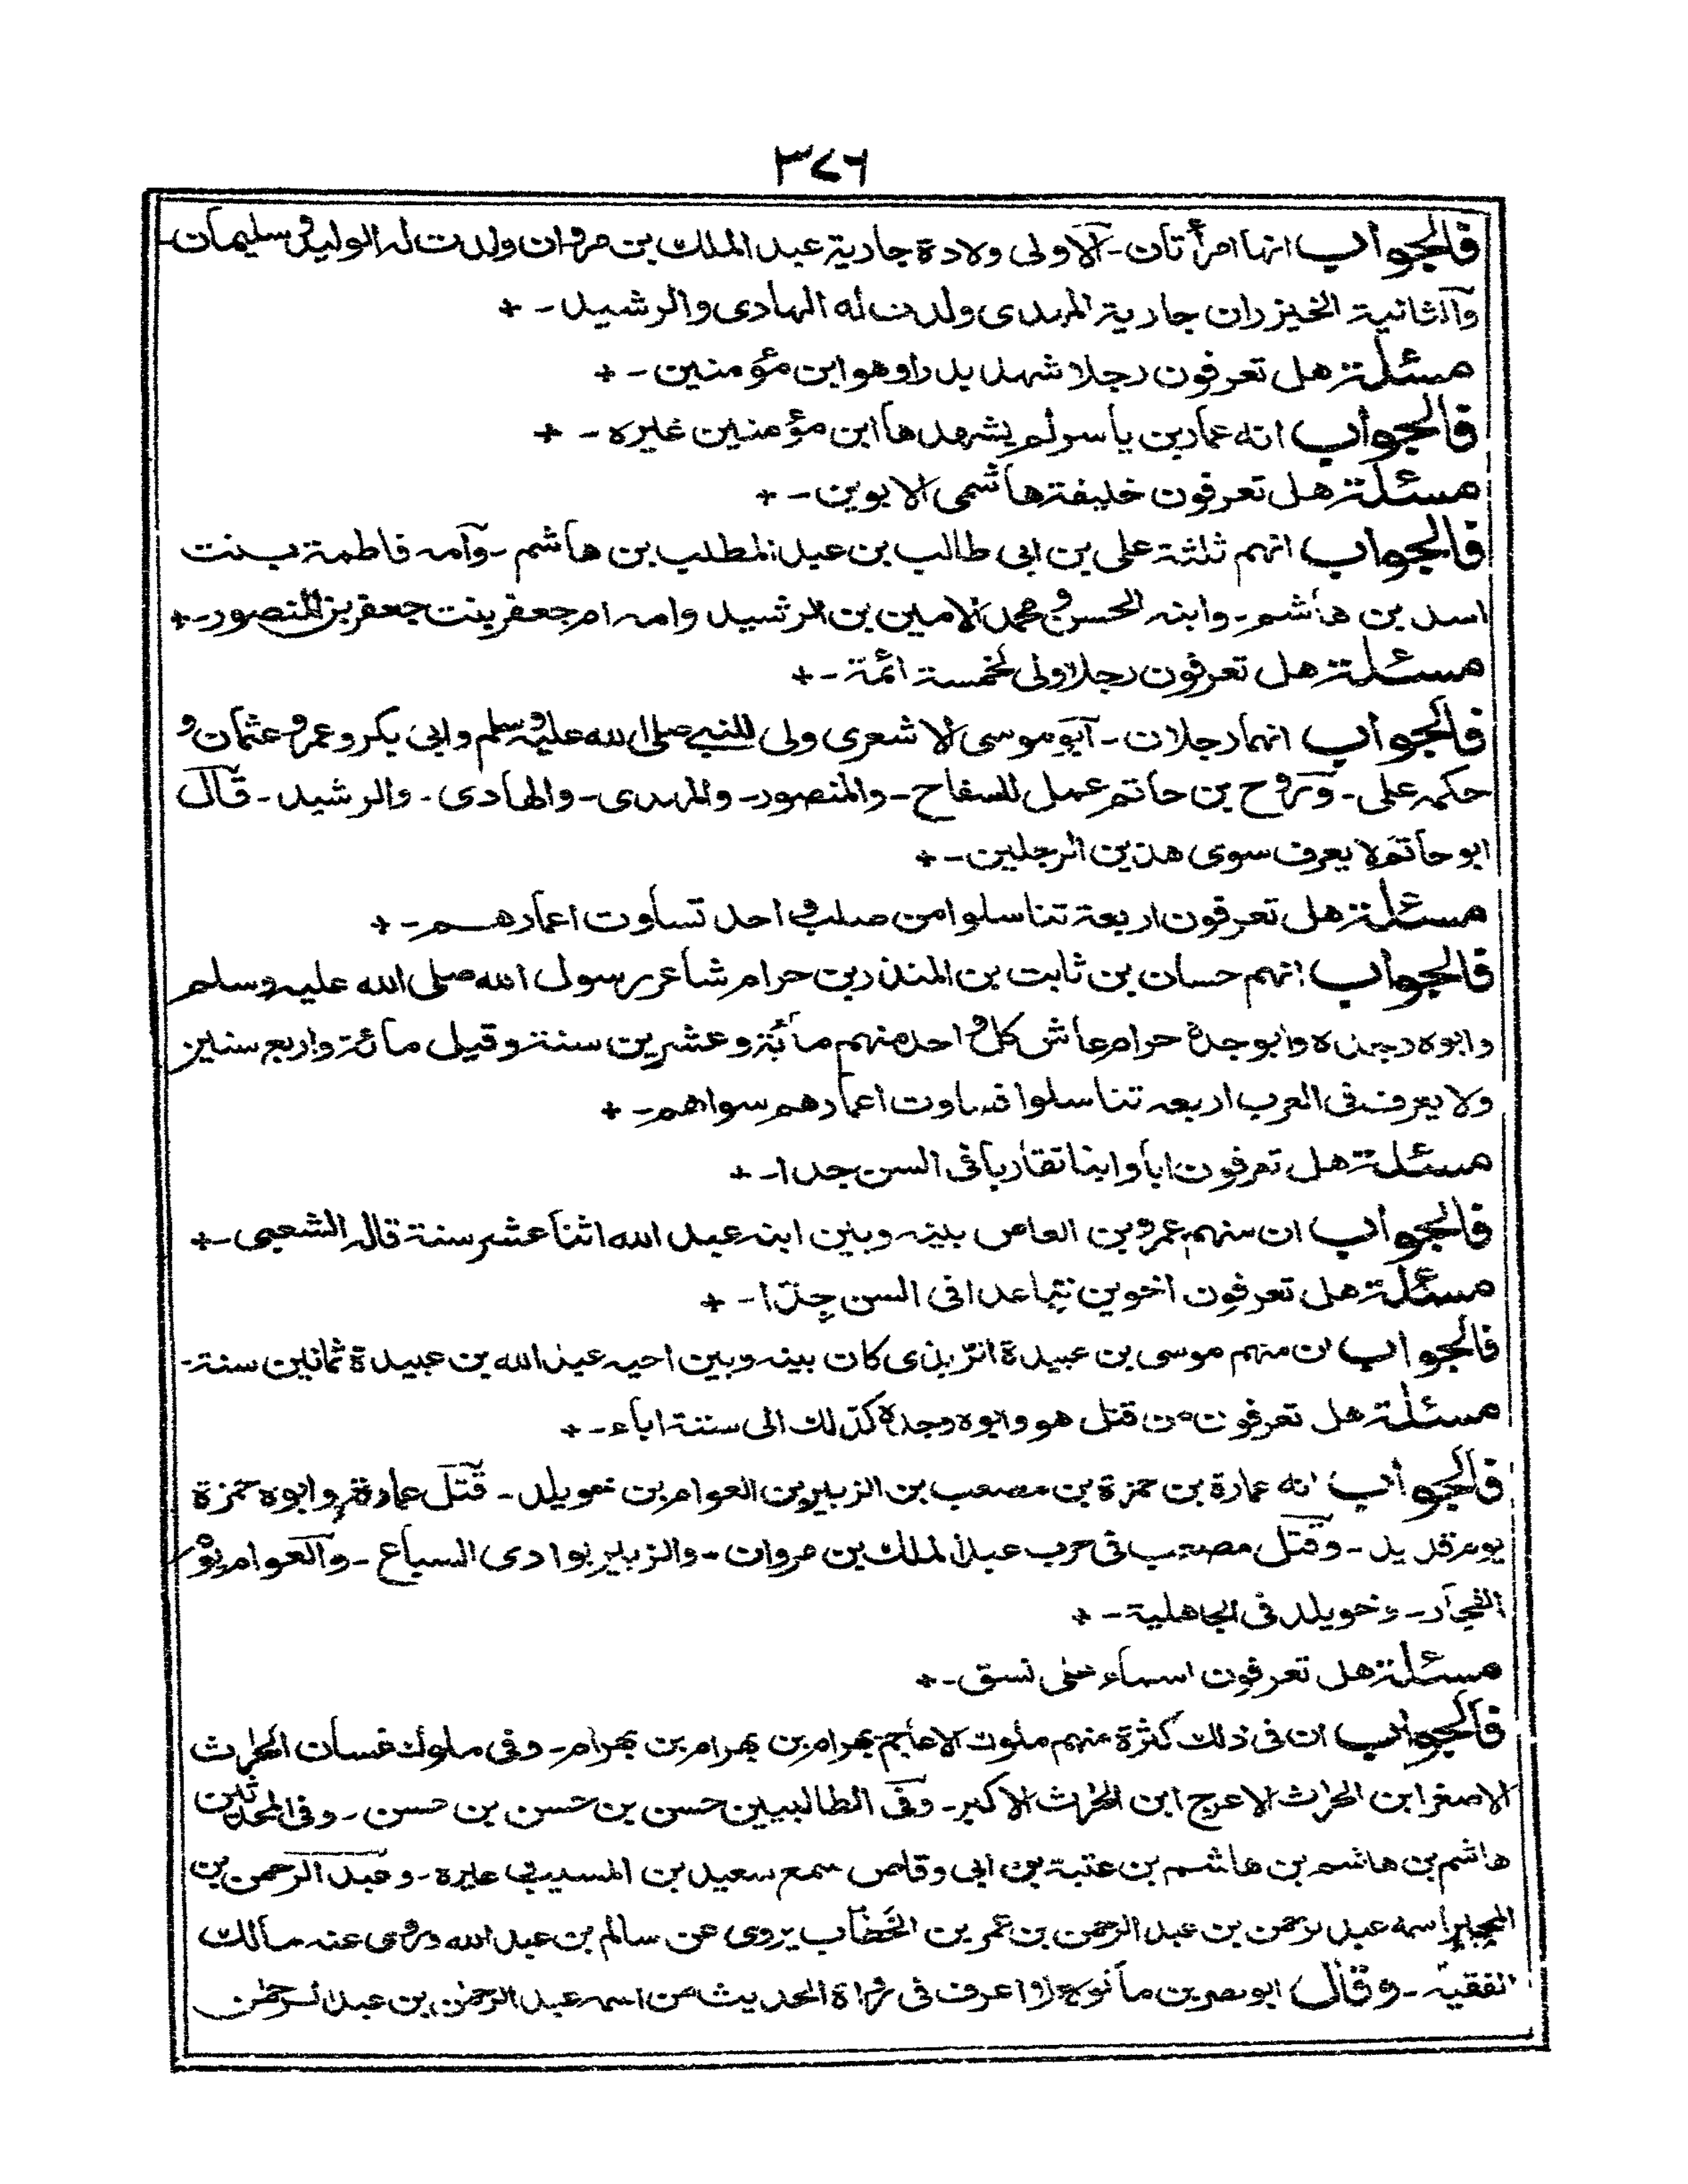 ٣٧٦
فالجواب انها امرأتان۔ الاولی ولادة جارية عبد الملك بن مروان ولدت له الوليد وسليمان۔
والثانية الخيزران جارية المهدی ولدت له الهادی والرشيد۔ +
مسئلة هل تعرفون رجلا شهد بدرا وهو ابن مؤمنين۔ +
فالجواب انه عمار بن ياسر لم يشهدها ابن مؤمنين غيره۔ +
مسئلة هل تعرفون خليفة هاشمی الابوين۔ +
فالجواب انهم ثلثة علی بن ابی طالب بن عبد المطلب بن هاشم۔ وامه فاطمة بنت
اسد بن هاشم۔ وابنه الحسن ومحمد الامين بن الرشيد وامه ام جعفر بنت جعفر بن المنصور۔ +
مسئلة هل تعرفون رجلا ولی لخمسة ائمة۔ +
فالجواب انهما رجلان۔ ابو موسی الاشعری ولی للنبی صلی الله عليه وسلم وابی بكر وعمر وعثمان و
حكمه علی۔ وروح بن حاتم عمل للسفاح۔ والمنصور۔ والمهدی۔ والهادی۔ والرشيد۔ قال
ابو حاتم لا يعرف سوی هذين الرجلين۔ +
مسئلة هل تعرفون اربعة تناسلوا من صلب واحد تساوت اعمارهم۔ +
فالجواب انهم حسان بن ثابت بن المنذر بن حرام شاعر رسول الله صلی الله عليه وسلم
وابوه وجده وابو جده حرام عاش كل واحد منهم مائة وعشرين سنة وقيل مائة واربع سنين
ولا يعرف فی العرب اربعه تناسلوا تساوت اعمارهم سواهم۔ +
مسئلة هل تعرفون ابا وابنا تقاربا فی السن جدا۔ +
فالجواب ان منهم عمرو بن العاص بينه وبين ابنه عبد الله اثنا عشر سنة قاله الشعبی۔ +
مسئلة هل تعرفون اخوين تباعدا فی السن جدا۔ +
فالجواب ان منهم موسی بن عبيدة الربذی كان بينه وبين اخيه عبد الله بن عبيدة ثمانين سنة۔
مسئلة هل تعرفون من قتل هو وابوه وجده كذلك الی ستة اباء۔ +
فالجواب انه عمارة بن حمزة بن مصعب بن الزبير بن العوام بن خويلد۔ قتل عمارة وابوه حمزة
يوم قديد۔ وقتل مصعب فی حرب عبد الملك بن مروان۔ والزبير بوادی السباع۔ والعوام يوم
الفجار۔ وخويلد فی الجاهلية۔ +
مسئلة هل تعرفون اسماء علی نسق۔ +
فالجواب ان فی ذلك كثرة منهم ملوك الاعاجم بهرام بن بهرام بن بهرام۔ وفی ملوك غسان الحارث
الاصغر ابن الحارث الاعرج ابن الحارث الاكبر۔ وفی الطالبيين حسن بن حسن بن حسن۔ وفی المحدثين
هاشم بن هاشم بن هاشم بن عتبة بن ابی وقاص سمع سعيد بن المسيب وغيره۔ وعبد الرحمن بن
المجبر اسمه عبد الرحمن بن عبد الرحمن بن عمر بن الخطاب يروی عن سالم بن عبد الله وروی عنه مالك
الفقيه۔ وقال ابو نصر بن ماكولا لا اعرف فی رواة الحديث من اسمه عبد الرحمن بن عبد الرحمن